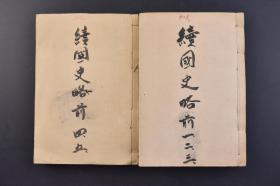 續國史略前一二三
續國史略前四五